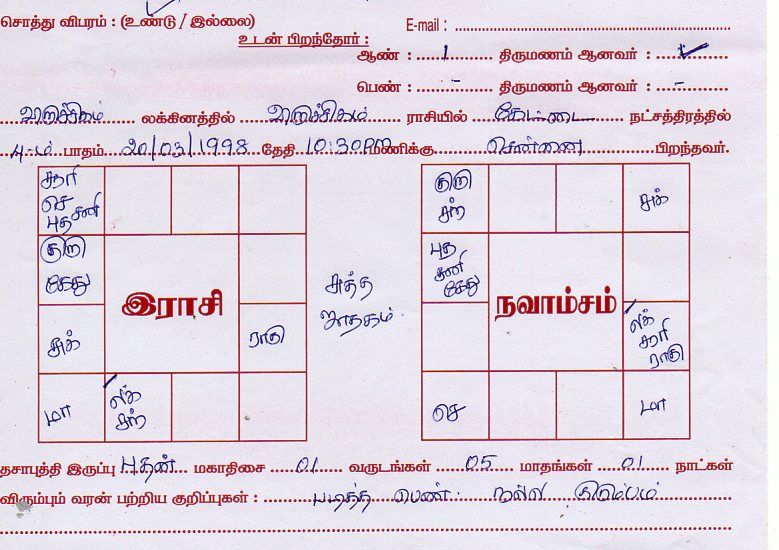 சொத்து விபரம் : (உண்டு / இல்லை) E-mail :
உடன் பிறந்தோர் :
ஆண் : 1 திருமணம் ஆனவர் : ✓
பெண் : - திருமணம் ஆனவர் : -
விருச்சிகம் லக்கினத்தில் விருச்சிகம் ராசியில் கேட்டை நட்சத்திரத்தில்
4-ம் பாதம் 20/03/1998 தேதி 10:30PM மணிக்கு சென்னை பிறந்தவர்.
சூரி
செ
புத சனி
குரு
கேது
சுக்
மா
ல்க்
சந்
ராகு
இராசி
சுத்த
ஜாதகம்
குரு
சந்
சுக்
புத
சனி
கேது
நவாம்சம்
ல்க்
சூரி
ராகு
செ
மா
தசாபுத்தி இருப்பு புதன் மகாதிசை 01 வருடங்கள் 05 மாதங்கள் 01 நாட்கள்
விரும்பும் வரன் பற்றிய குறிப்புகள் : படித்த பெண். நல்ல குடும்பம்